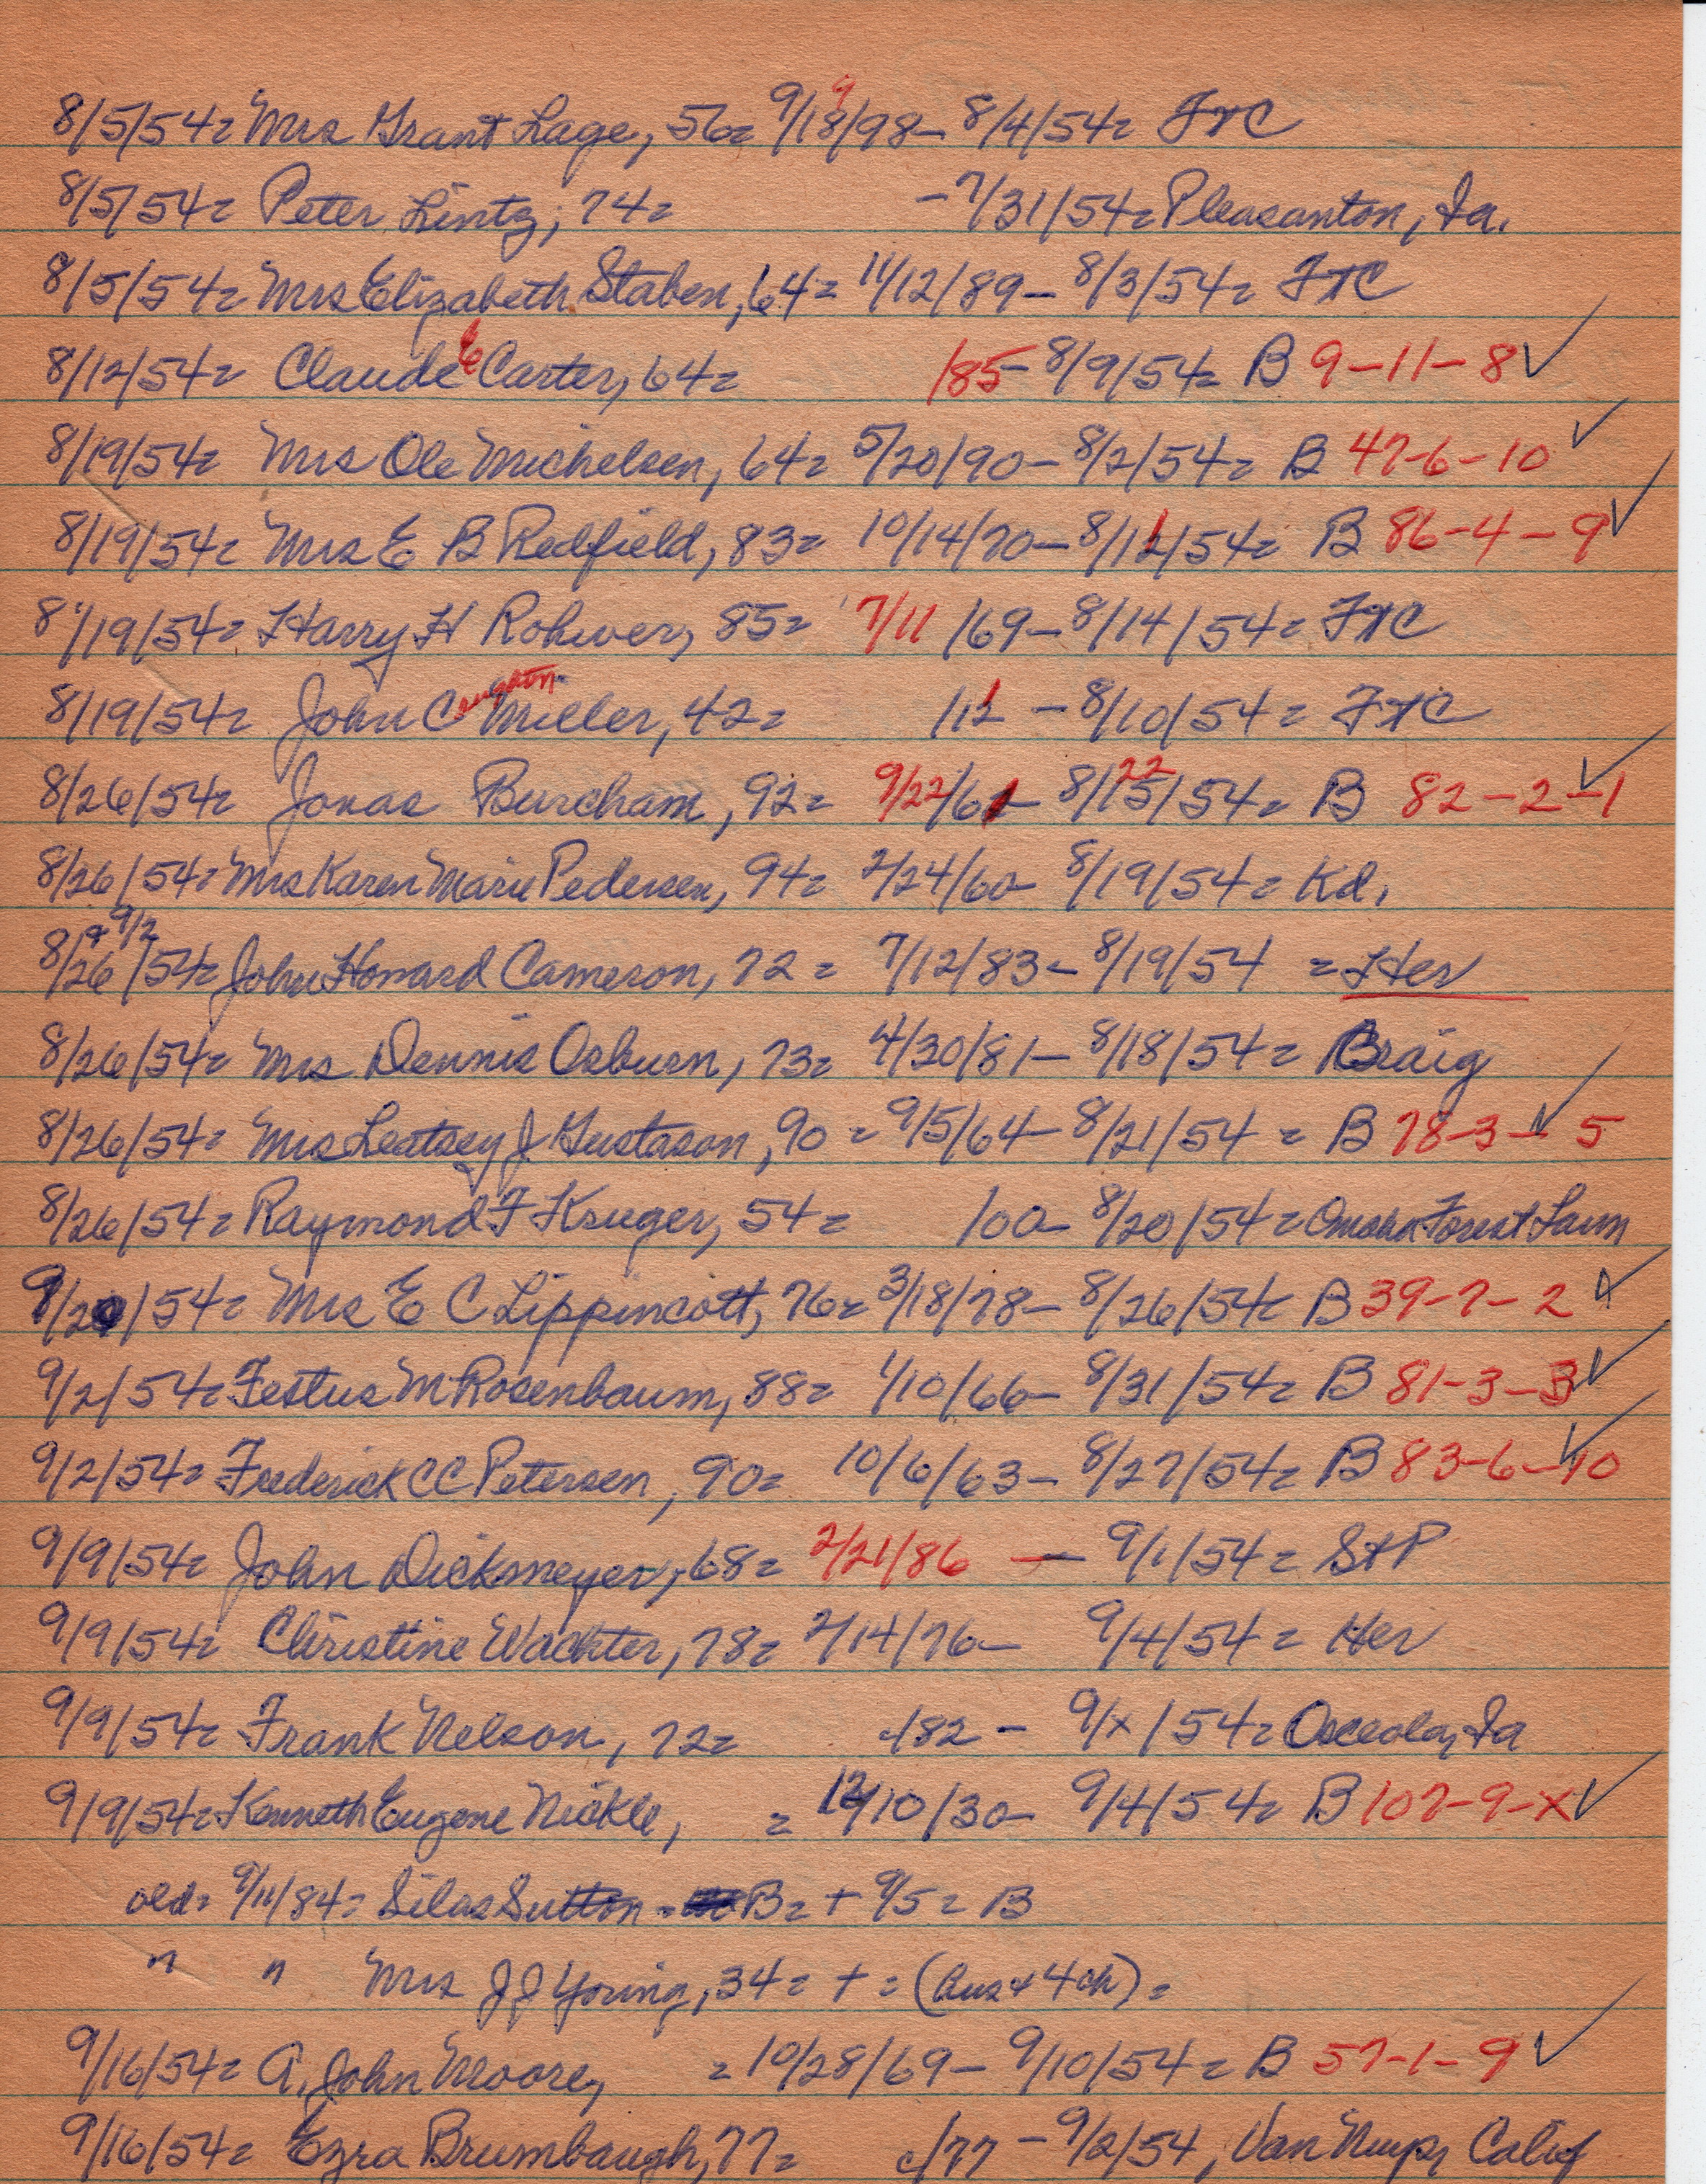 8/5/54= Mrs Grant Lage, 56= 9/18/98- 8/4/54= FTC
8/5/54= Peter Lintz, 74= -7/31/54= Pleasanton, Ia.
8/5/54= Mrs Elizabeth Staben, 64= 11/12/89- 8/3/54= FTC
8/12/54= Claude E Carter, 64= /85- 8/9/54= B 9-11-8 ✓
8/19/54= Mrs Ole Michelsen, 64= 5/20/90- 8/2/54= B 47-6-10 ✓
8/19/54= Mrs E B Redfield, 83= 10/14/70- 8/11/54= B 86-4-9 ✓
8/19/54= Harry H Rohwer, 85= 7/11/69- 8/14/54= FTC
8/19/54= John Caughton Miller, 42= /11 - 8/10/54= FTC
8/26/54= Jonas Burcham, 92= 9/22/61- 8/22/54= B 82-2-1 ✓
8/26/54= Mrs Karen Marie Pedersen, 94= 2/24/60- 8/19/54= Kd.
8/26 + 9/2/54= John Howard Cameron, 72= 7/12/83- 8/19/54 = Her
8/26/54= Mrs Dennis Osburn, 73= 4/30/81- 8/18/54= Braig
8/26/54= Mrs Leatsey J Gustason, 90= 9/5/64- 8/21/54= B 78-3-5 ✓
8/26/54= Raymond F Kruger, 54= /00- 8/20/54= Omaha Forest Lawn
9/2/54= Mrs E C Lippincott, 76= 3/18/78- 8/26/54= B 39-7-2 ✓
9/2/54= Festus M Rosenbaum, 88= 1/10/66- 8/31/54= B 81-3-3 ✓
9/2/54= Frederick CC Petersen, 90= 10/6/63- 8/27/54= B 83-6-10 ✓
9/9/54= John Dickmeyer, 68= 2/21/86 - 9/1/54= StP
9/9/54= Christine Wachter, 78= 2/14/76- 9/4/54= Her
9/9/54= Frank Nelson, 72= c/82 - 9/x/54= Osceola, Ia
9/9/54= Kenneth Eugene Nickle, = 12/10/30- 9/4/54= B 107-9-x ✓
old= 9/11/84= Silas Sutton - B= + 9/5= B
" " Mrs J J Young, 34= + = (hus + 4 ch) =
9/16/54= A. John Moore, = 10/28/69- 9/10/54= B 57-1-9 ✓
9/16/54= Ezra Brumbaugh, 77= c/77 - 9/2/54, Van Nuys, Calif